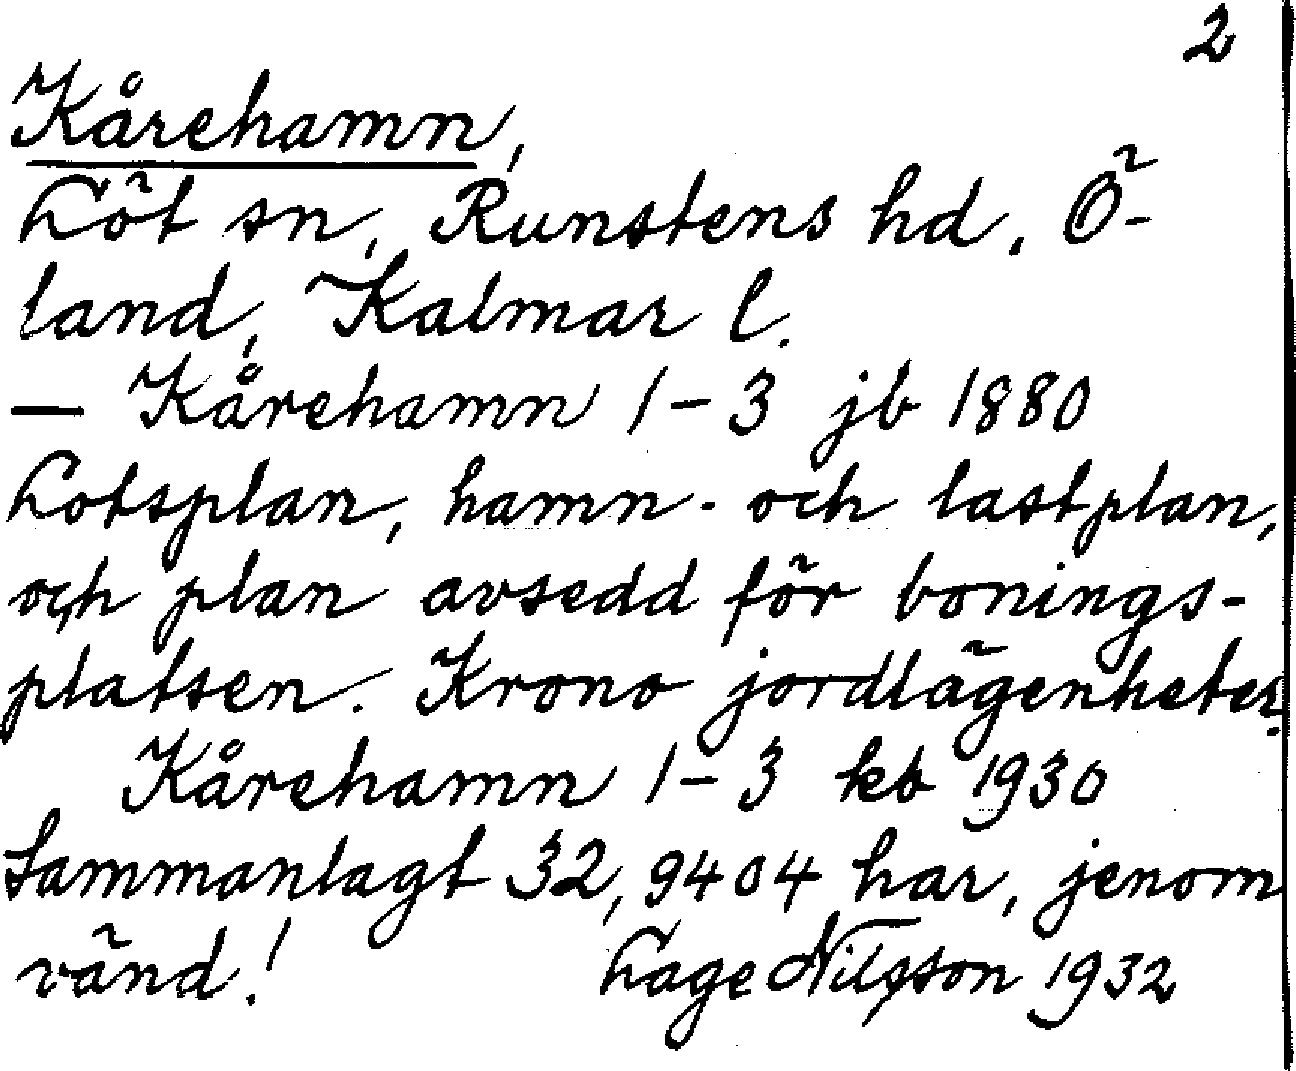 2
Kårehamn,
Löt sn, Runstens hd. Ö-
land, Kalmar l.
— Kårehamn 1-3 jb 1880
Lotsplan, hamn- och lastplan,
och plan avsedd för bonings-
platsen. Krono jordlägenheter.
Kårehamn 1-3 kb 1930
Sammanlagt 32,9404 har, jenom
vänd! Lage Nilsson 1932